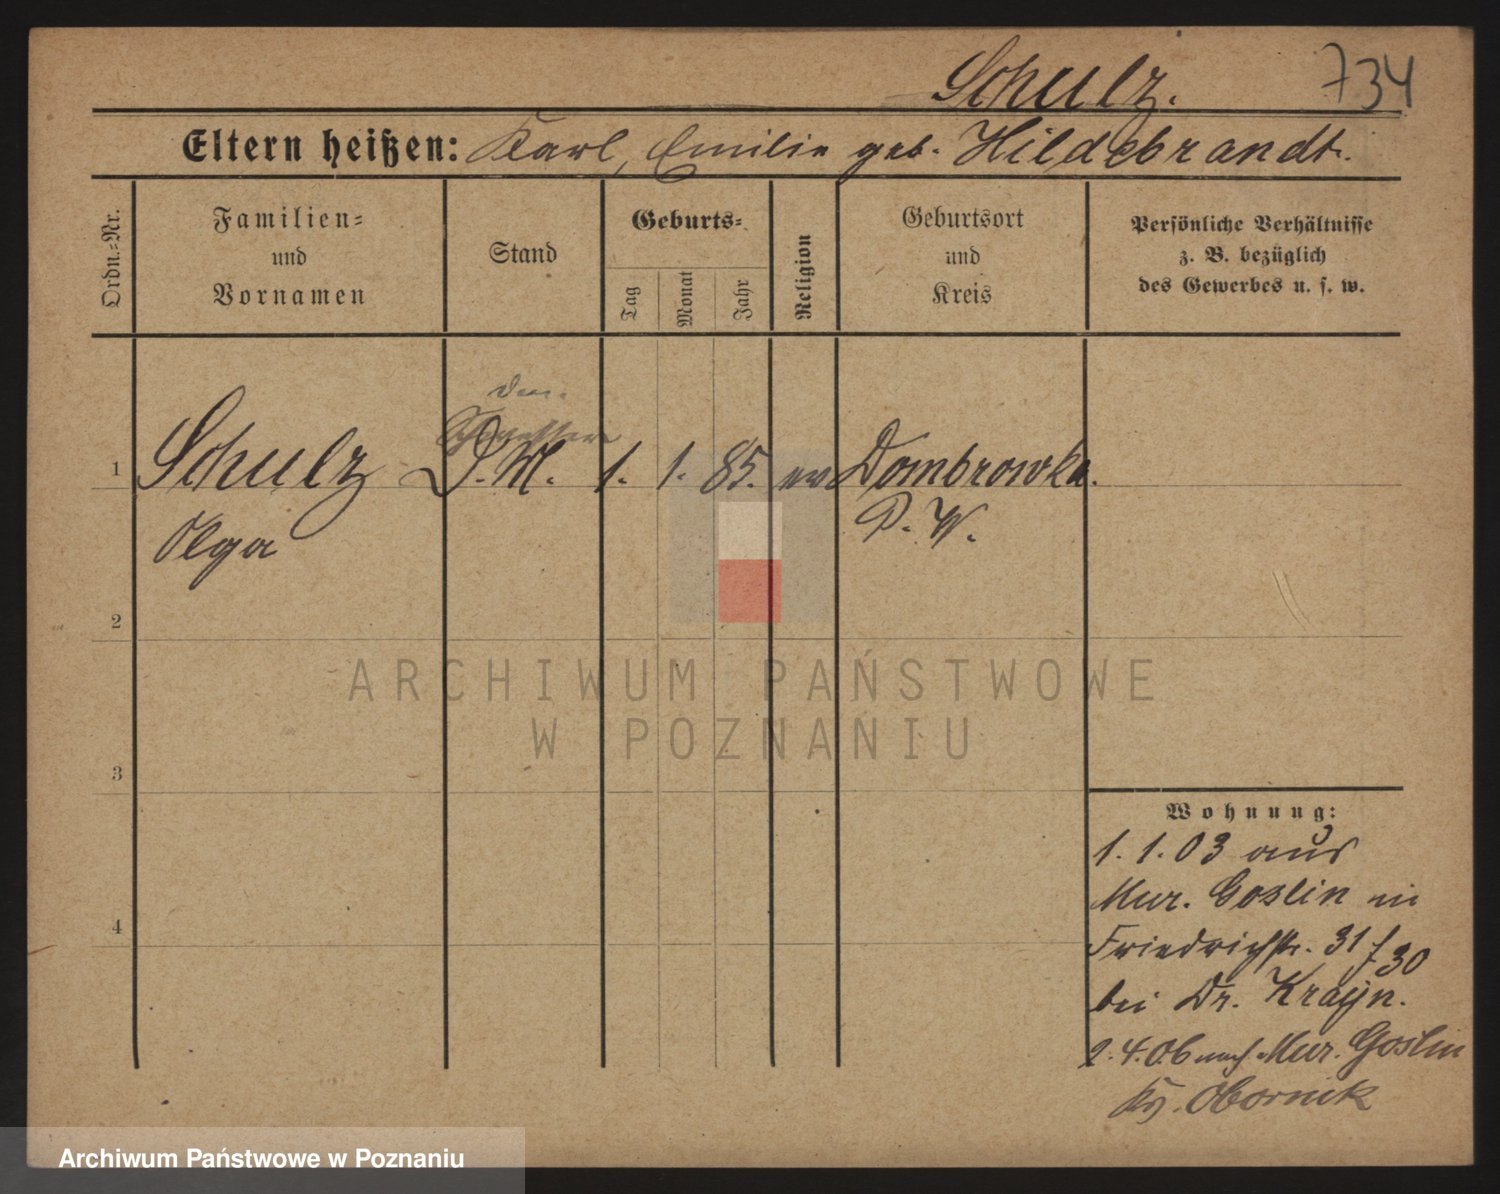 Schulz. 734
Eltern heißen: Karl, Emilie geb. Hildebrandt.
Ordn.-Nr.
Familien-
und
Vornamen
Stand
Geburts-
Tag
Monat
Jahr
Religion
Geburtsort
und
Kreis
Persönliche Verhältnisse
z. B. bezüglich
des Gewerbes u. s. w.
1 Schulz D.M. 1. 1. 85. ev Dombrowka.
Olga P. W.
2
3
4
Wohnung:
1. 1. 03 aus
Mur. Goslin in
Friedrichstr. 31 f 30
bei Dr. Krayn.
2. 4. 06 nach Mur. Goslin
Kr. Obornik
ARCHIWUM PAŃSTWOWE
W POZNANIU
Archiwum Państwowe w Poznaniu